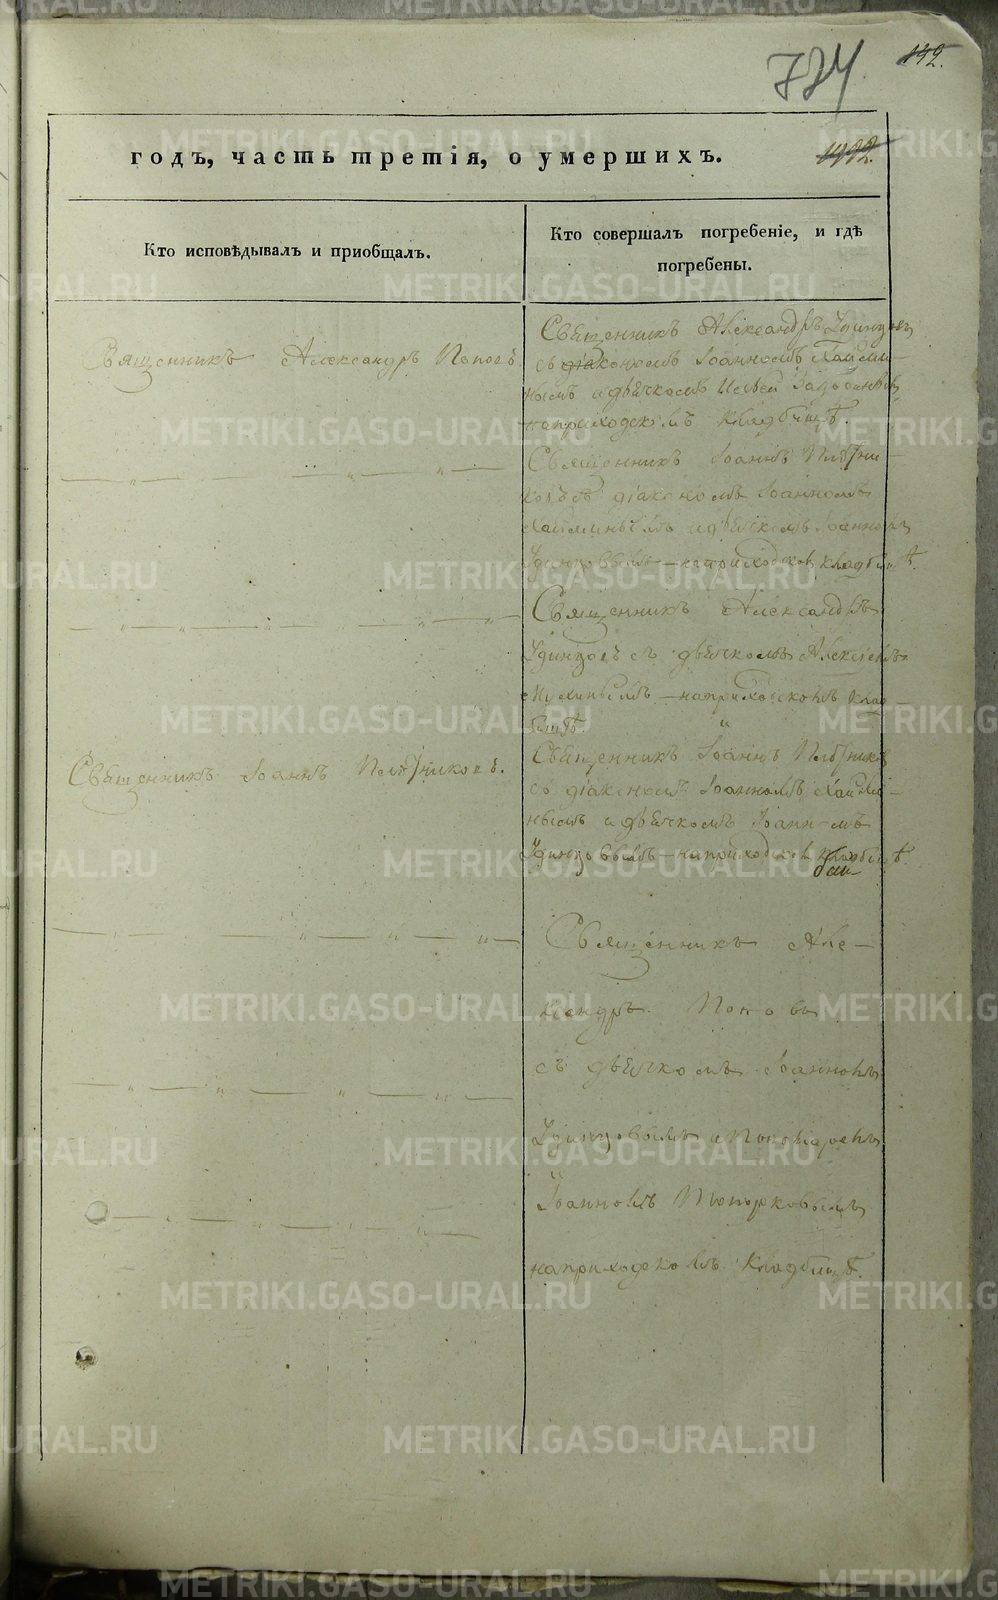 724
142.
годъ, часть третія, о умершихъ.
Кто исповѣдывалъ и приобщалъ.
Кто совершалъ погребеніе, и гдѣ
погребены.
Священникъ Александръ Поповъ
Священникъ Александръ Удинцовъ
съ діакономъ Іоанномъ
и дьячкомъ
на приходскомъ кладбищѣ.
Священникъ Іоаннъ Плотни-
ковъ съ діакономъ Іоанномъ
и дьячкомъ Іоанномъ
Удинцовымъ – на приходском кладбищѣ.
Священникъ Александръ
Удинцовъ съ дьячкомъ Алексѣемъ
– на приходскомъ клад-
бищѣ.
Священникъ Іоаннъ Плотниковъ.
Священникъ Іоаннъ Плотников
съ діакономъ Іоанномъ
и дьячкомъ Іоанномъ
Удинцовымъ – на приходском кладбищѣ
Священникъ Але-
ксандръ Поповъ
съ дьячкомъ Іоанномъ
Удинцовымъ и Пономаремъ
Іоанномъ Топорковымъ
на приходскомъ кладбищѣ.
METRIKI.GASO-URAL.RU